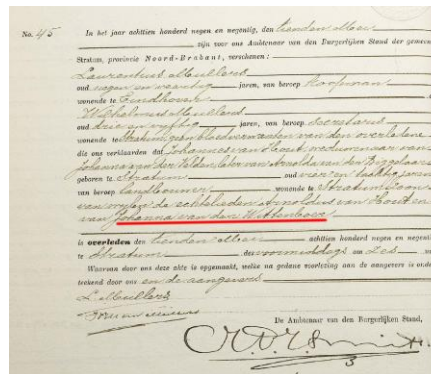 No. 45 In het jaar achttien honderd negen en negentig, den tienden Maei
zijn voor ons Ambtenaar van den Burgerlijken Stand der gemeen
Stratum, provincie Noord-Brabant, verschenen:
Laurentius Mullers
oud negen en veertig jaren, van beroep Koopman
wonende te Eindhoven
Wilhelmus Mullers
oud drie en vijftig jaren, van beroep Secretaris
wonende te Stratum, geen bloedverwanten van den overledene
die ons verklaarden dat Johannes van Hout, weduwnaar van
Johanna van der Velden, later van Arnolda van den Biggelaar
geboren te Stratum oud vier en tachtig jaren
van beroep landbouwer wonende te Stratum zoon
van wijlen de echtelieden Arnoldus van Hout en
van Johanna van den Wittenboer
is overleden den tienden Maei achttien honderd negen en negenti
te Stratum des voormiddags om zes
Waarvan door ons deze akte is opgemaakt, welke na gedane voorlezing aan de aangevers is onde
teekend door ons en de aangevers
L. Mullers
De Ambtenaar van den Burgerlijken Stand,